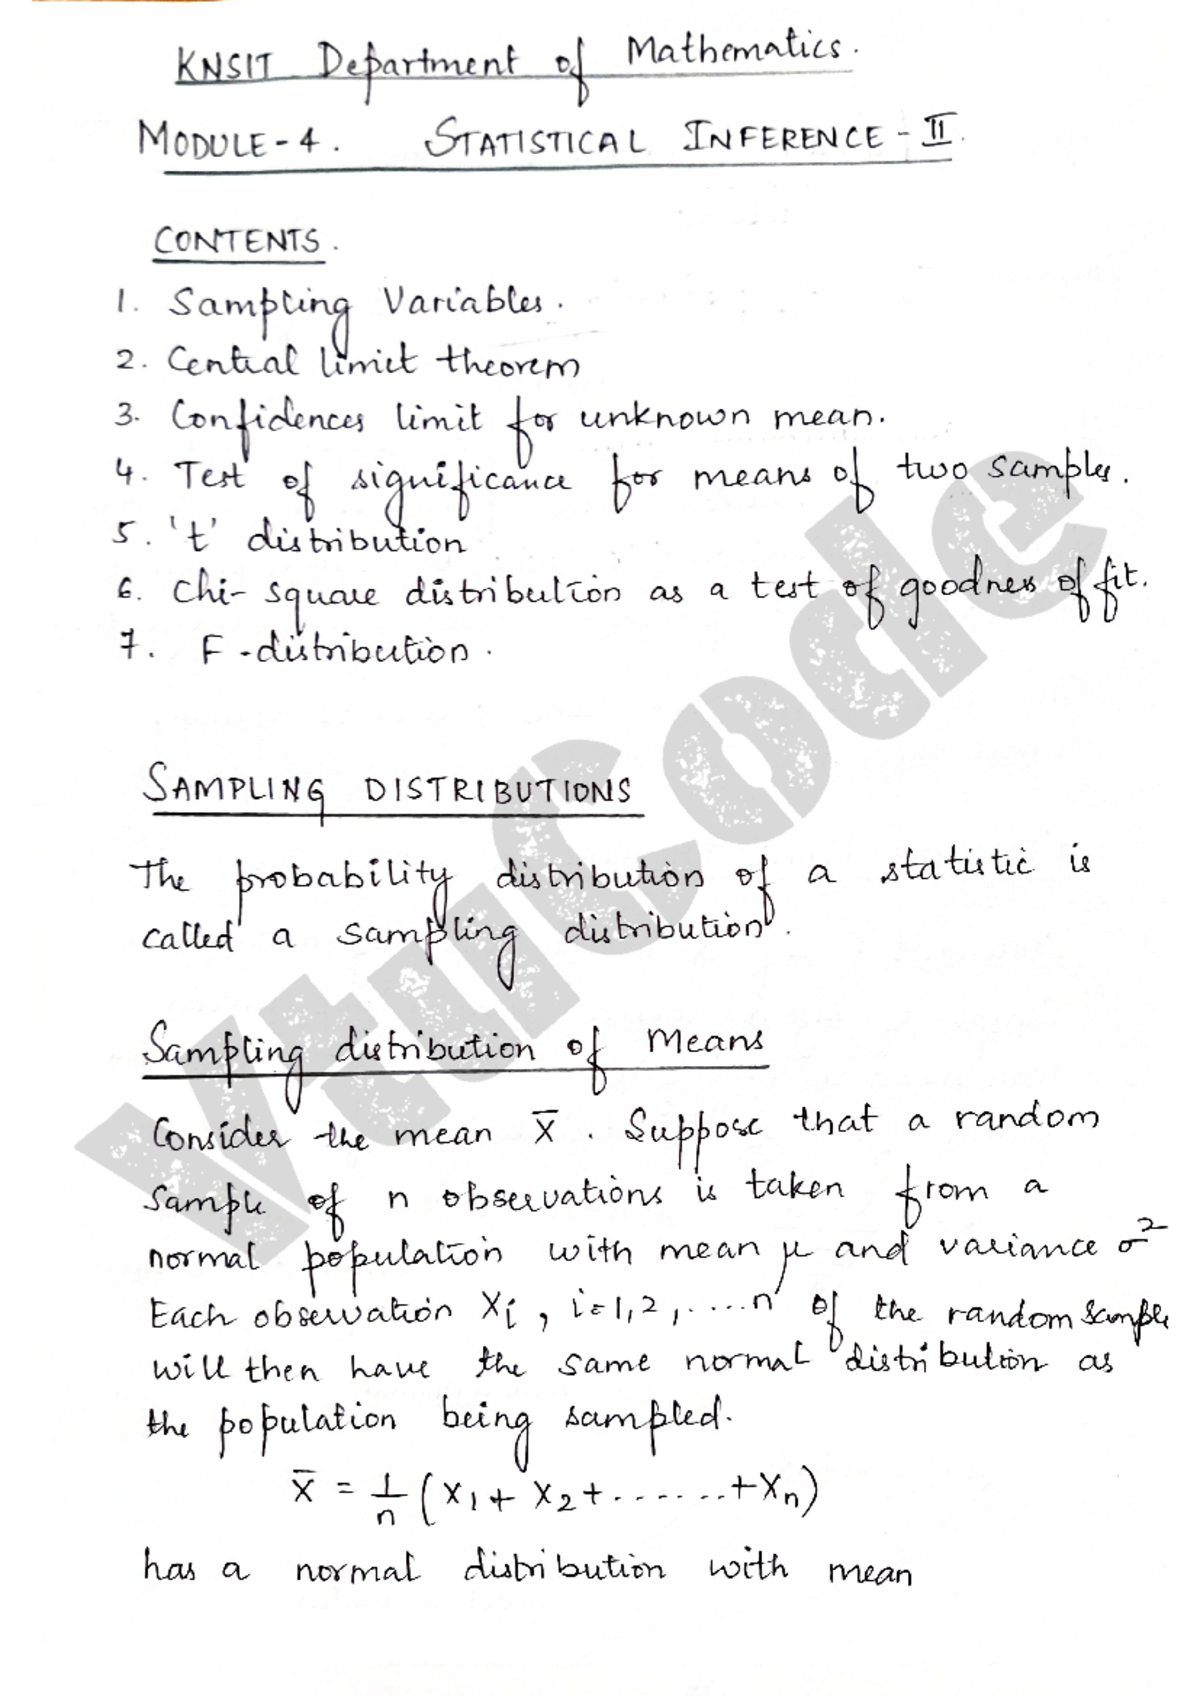 KNSIT Department of Mathematics.
MODULE-4. STATISTICAL INFERENCE-II.
CONTENTS.
1. Sampling Variables.
2. Central limit theorem
3. Confidences limit for unknown mean.
4. Test of significance for means of two samples.
5. 't' distribution
6. Chi-square distribution as a test of goodness of fit.
7. F-distribution.
SAMPLING DISTRIBUTIONS
The probability distribution of a statistic is
called a sampling distribution.
Sampling distribution of Means
Consider the mean X̅. Suppose that a random
sample of n observations is taken from a
normal population with mean μ and variance σ²
Each observation Xi, i=1,2,....n of the random sample
will then have the same normal distribution as
the population being sampled.
X̅ = 1/n (X₁+X₂+.......+Xn)
has a normal distribution with mean
VtuCode